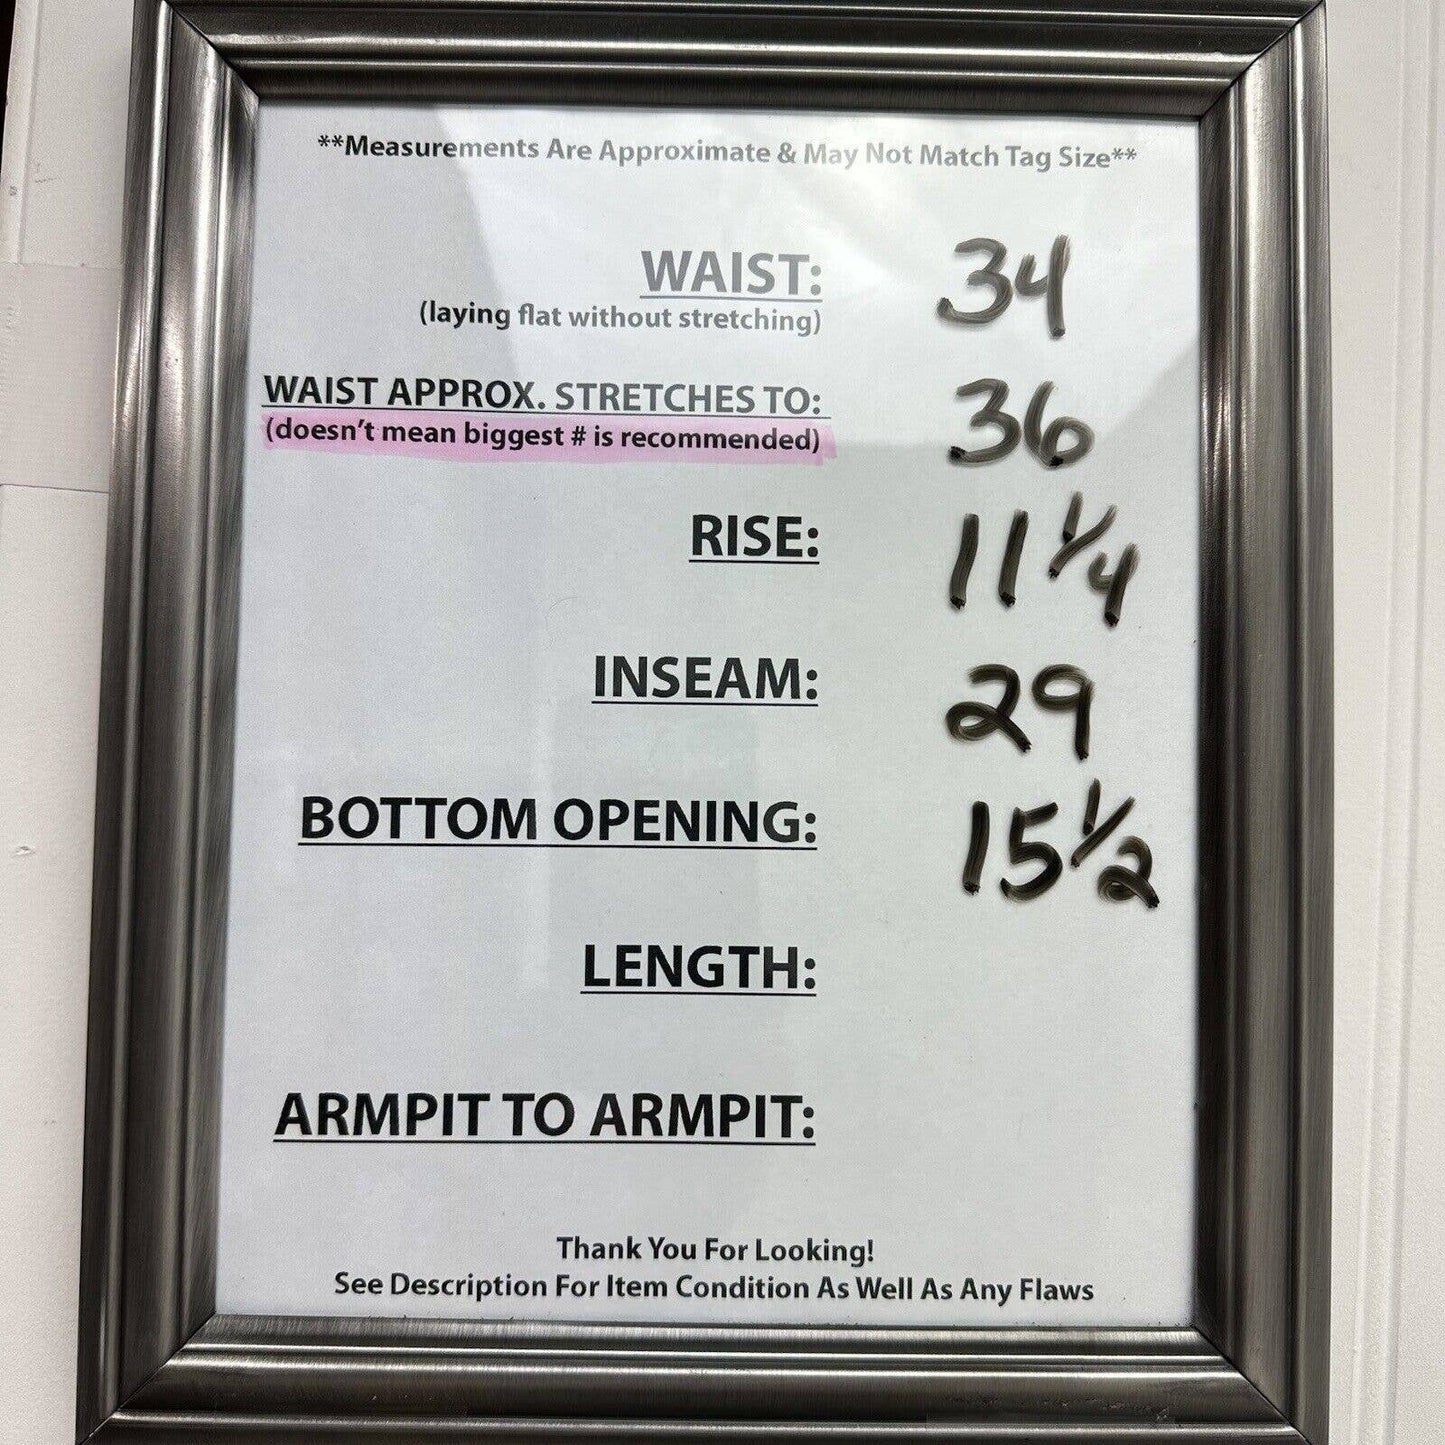 **Measurements Are Approximate & May Not Match Tag Size**
WAIST: 34
(laying flat without stretching)
WAIST APPROX. STRETCHES TO: 36
(doesn't mean biggest # is recommended)
RISE: 11 1/4
INSEAM: 29
BOTTOM OPENING: 15 1/2
LENGTH:
ARMPIT TO ARMPIT:
Thank You For Looking!
See Description For Item Condition As Well As Any Flaws